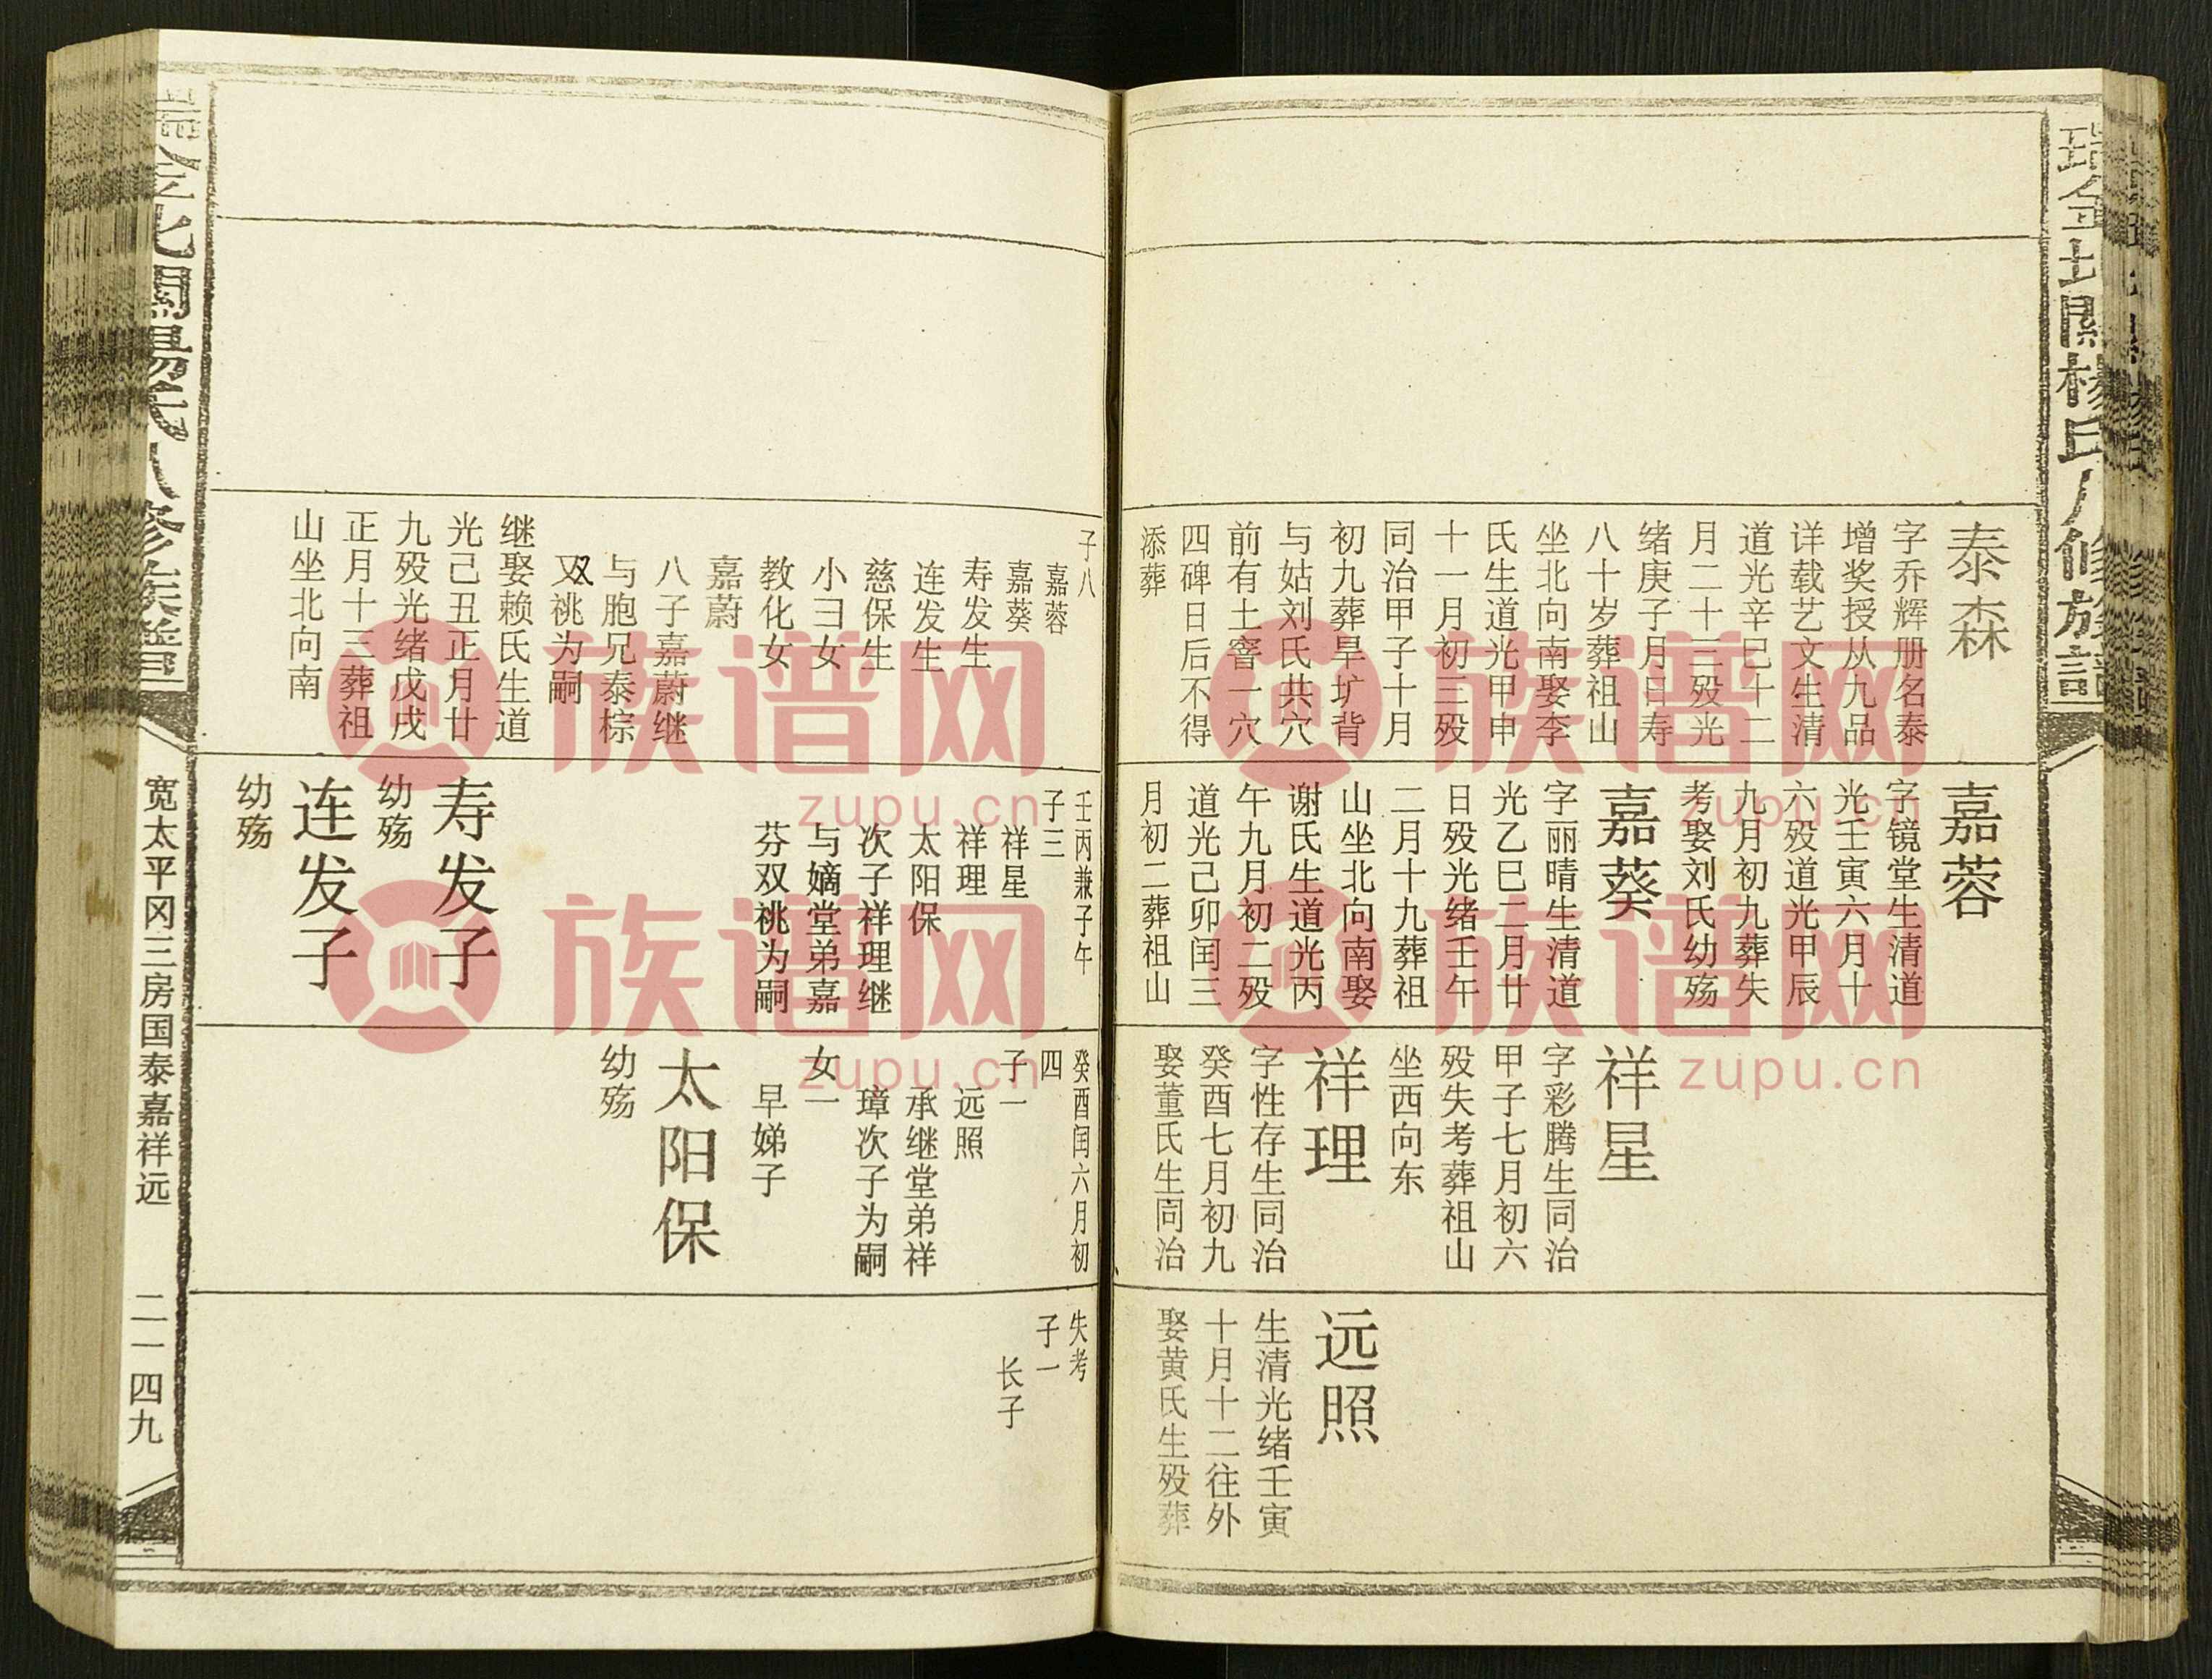 泰森
字乔辉册名泰
增奖授从九品
详载艺文生清
道光辛巳十二
月二十三殁光
绪庚子月日寿
八十岁葬祖山
坐北向南娶李
氏生道光甲申
十一月初三殁
同治甲子十月
初九葬旱圹背
与姑刘氏共穴
前有土窨一穴
四碑日后不得
添葬
嘉蓉
字镜堂生清道
光壬寅六月十
六殁道光甲辰
九月初九葬失
考娶刘氏幼殇
嘉葵
字丽晴生清道
光乙巳二月廿
日殁光绪壬午
二月十九葬祖
山坐北向南娶
谢氏生道光丙
午九月初二殁
道光己卯闰三
月初二葬祖山
祥星
字彩腾生同治
甲子七月初六
殁失考葬祖山
坐西向东
祥理
字性存生同治
癸酉七月初九
娶董氏生同治
远照
生清光绪壬寅
十月十二往外
娶黄氏生殁葬
子八
嘉蓉
嘉葵
寿发生
连发生
慈保生
小彐女
教化女
嘉蔚
八子嘉蔚继
与胞兄泰棕
双祧为嗣
继娶赖氏生道
光己丑正月廿
九殁光绪戊戌
正月十三葬祖
山坐北向南
壬丙兼子午
子三
祥星
祥理
太阳保
次子祥理继
与嫡堂弟嘉
芬双祧为嗣
寿发子
幼殇
连发子
幼殇
癸酉闰六月初
四
子一
远照
承继堂弟祥
璋次子为嗣
女一
早娣子
太阳保
幼殇
失考
子一
长子
宽太平冈三房国泰嘉祥远
二一四九
族谱网
zupu.cn
族谱网
zupu.cn
族谱网
zupu.cn
族谱网
zupu.cn